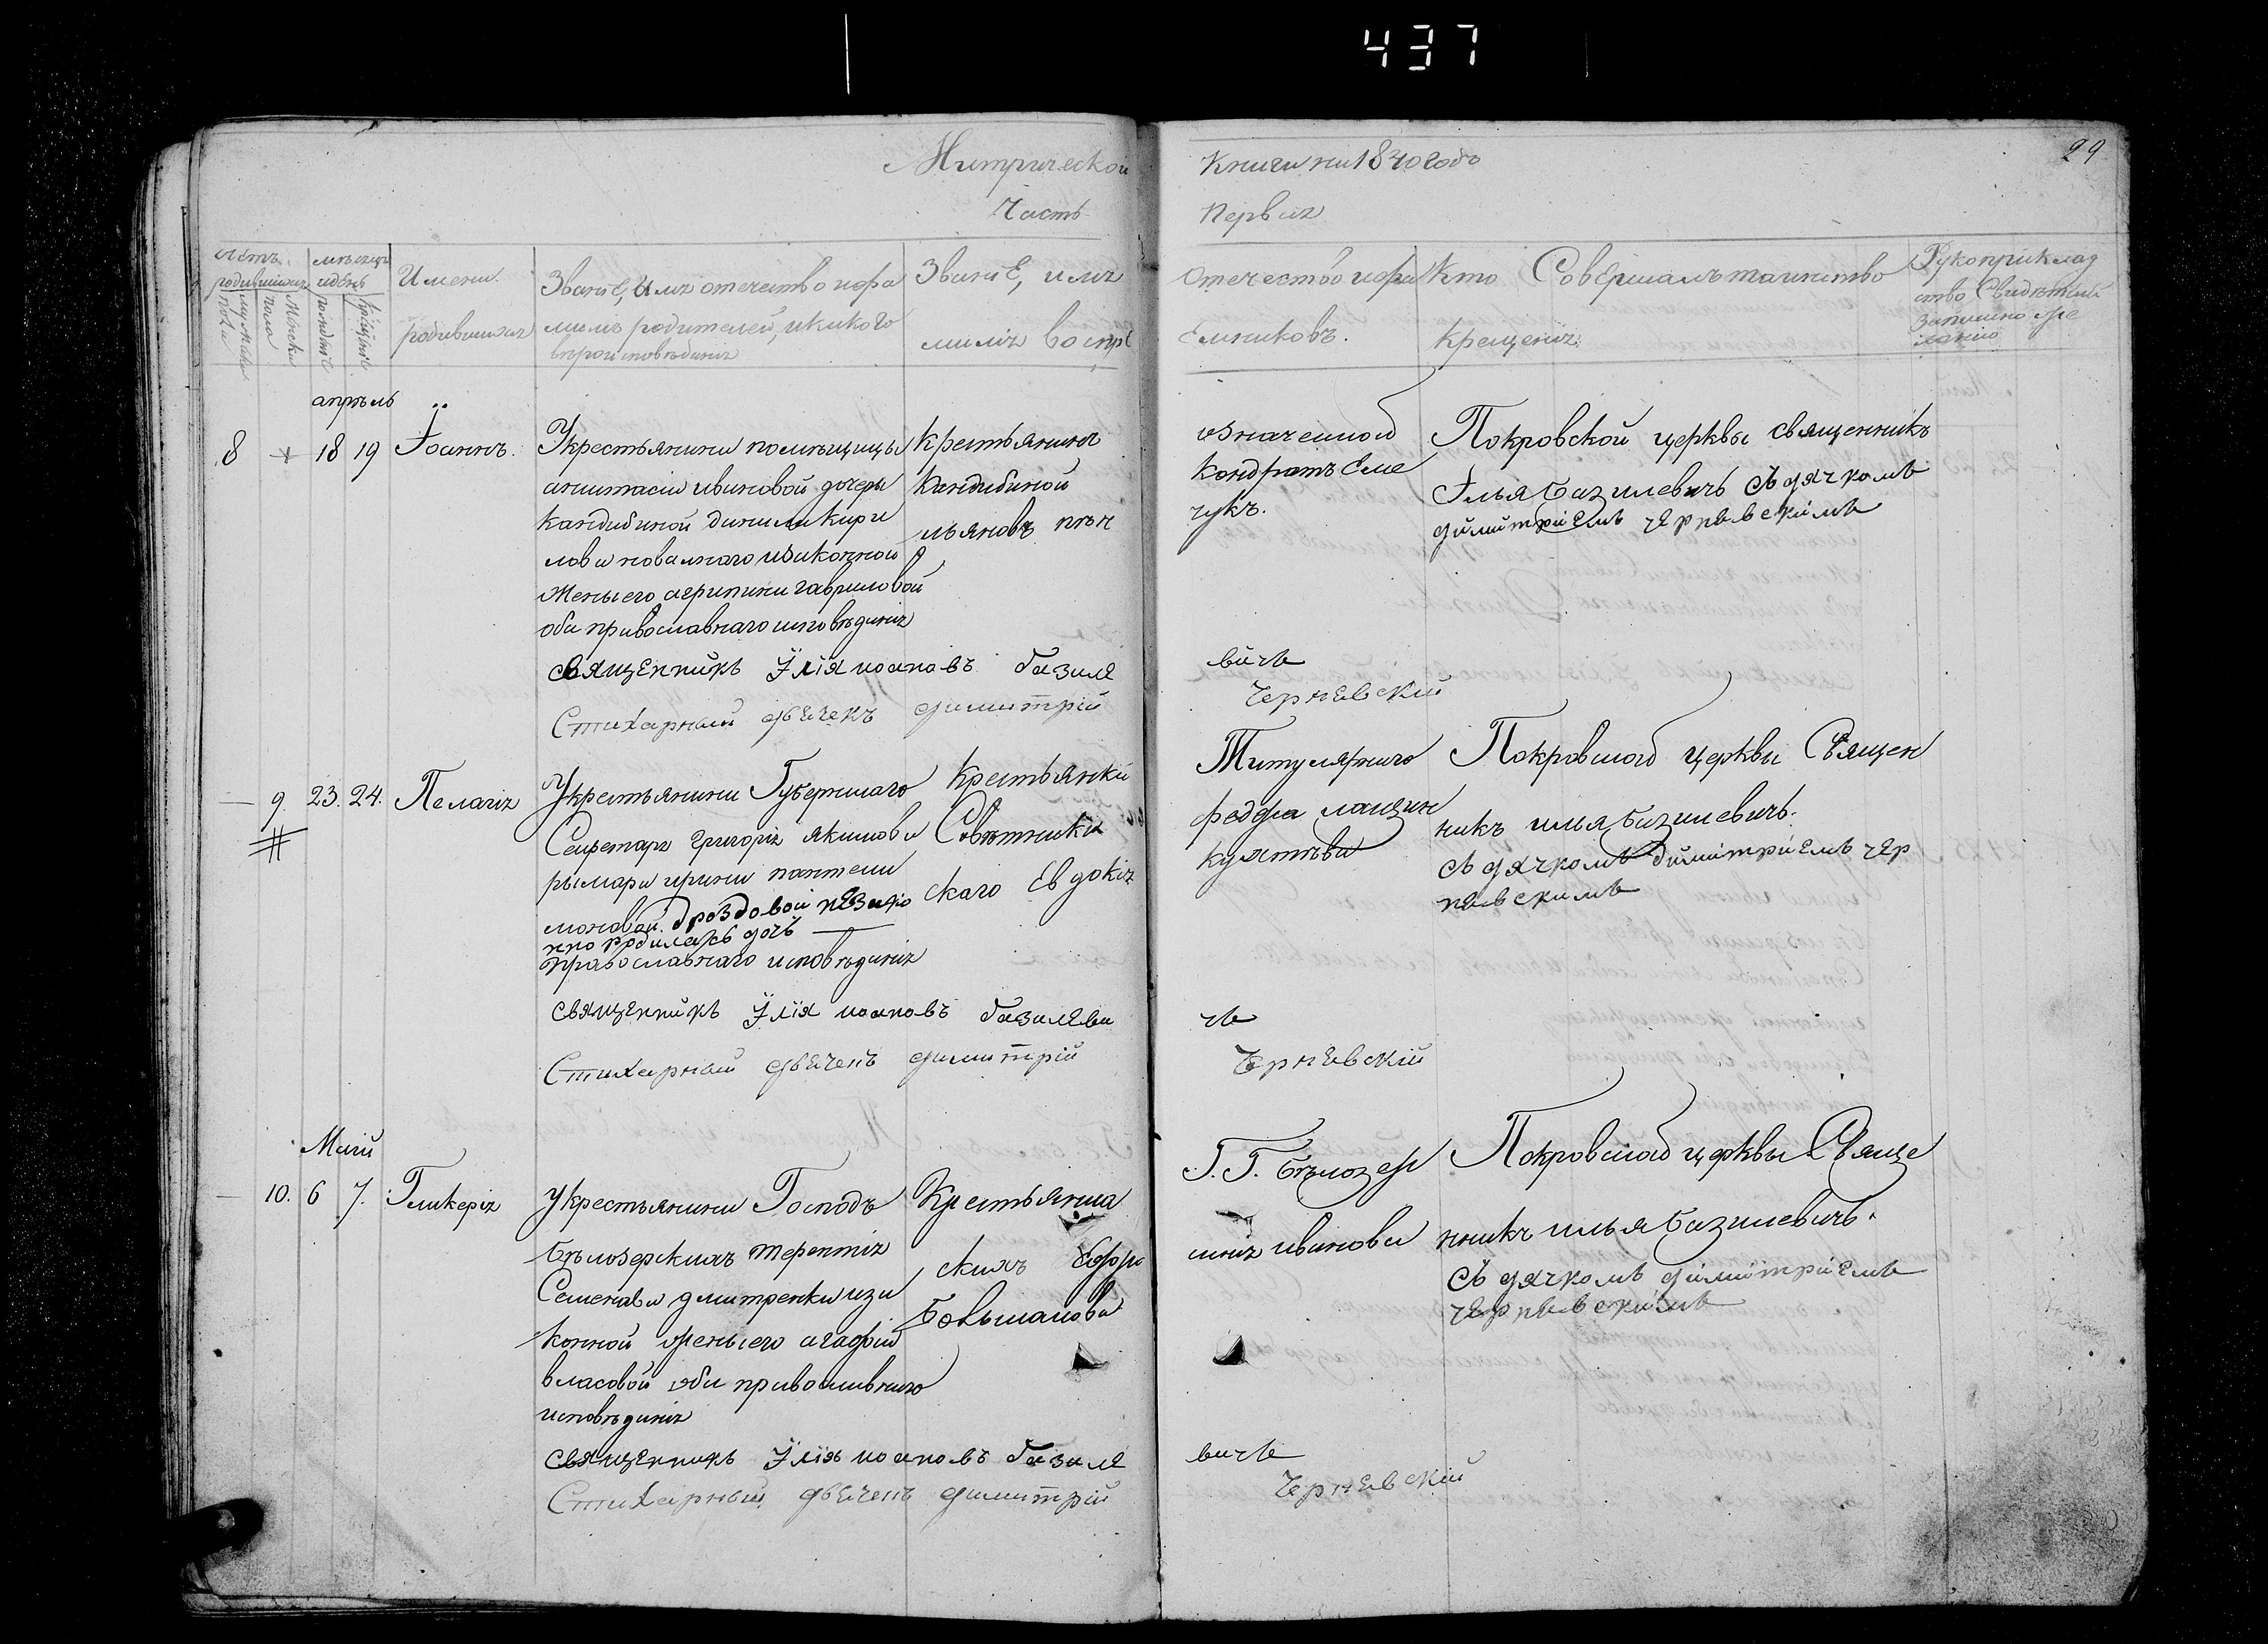 437
29
Митрической Книги на 1840 годъ
Часть Первая
счетъ родившихся
мужеска пола
женска
мѣсяцъ и день
рожденіе
крещеніе
Имена родившихся
Званіе, имя отечество и фамилія родителей, и какого вѣроисповѣданія
Званіе, имя отечество и фамилія воспріемниковъ.
Кто Совершалъ таинство крещенія
Рукоприкладство Свидѣтелей записано желанію
апрѣль
8 18 19 Іоаннъ.
У крестьянина помѣщицы
анастасіи ивановой дочеры
кандибиной данила кири
лова новального изаконной
жены его агрипини гавриловой
оба православнаго исповѣданія
крестьянинъ означенной
Кандибиной Кондратъ Еме
льяновъ
чукъ.
Покровской церквы священникъ
Ілья базилевичъ съ дячкомъ
димитріемъ чернѣвскимъ
священникъ Ілія иоановъ базилевичь
Стихарный дьячекъ димитрій Чернѣвскій
9 23. 24. Пелагія
У крестьянина Губернскаго
Секретаря григорія якимова
рымара ирини пантели
моновой дроздовой незако
нно родилась дочь
православнаго исповѣданія
Крестьянка Титулярнаго
Совѣтника
скаго Евдокія
Покровской церквы Священ
никъ илья базилевичъ.
съ дячкомъ димитріемъ чер
нѣвскимъ
священникъ Ілія иоановъ базилевичь
Стихарный дьячекъ димитрій Чернѣвскій
Маій
10. 6 7. Гликерія
У крестьянина Господъ
бѣлозерскихъ терентія
Семенова дмитренка иза
конной жены его агафіи
власовой оба православнаго
исповѣданія
Крестьянка Г. Г. бѣлозер
скихъ Ефросинія иванова
большакова
Покровской церквы Свяще
нникъ илья базилевичъ.
съ дячкомъ димитріемъ
чернѣвскимъ
священникъ Ілія иоановъ базилевичь
Стихарный дьячекъ димитрій Чернѣвскій